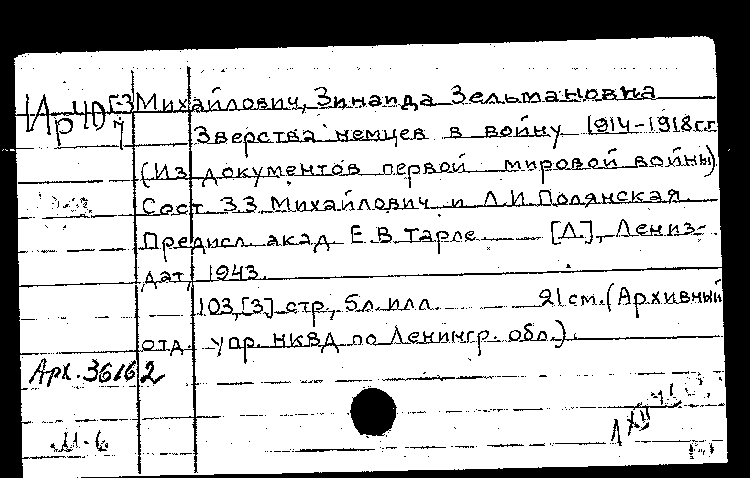 Ир40 Г-3/4 Михайлович, Зинаида Зельмановна
Зверства немцев в войну 1914-1918г.г.
(Из документов первой мировой войны)
Сост. З.З. Михайлович и Л.И. Полянская.
Предисл. акад. Е.В. Тарле. [Л.], Лениз-
дат, 1943.
103,[3] стр., 5л. илл. 21 см. (Архивный
отд. упр. НКВД по Ленингр. обл.).
Арх. 36162
М-6
1 XII